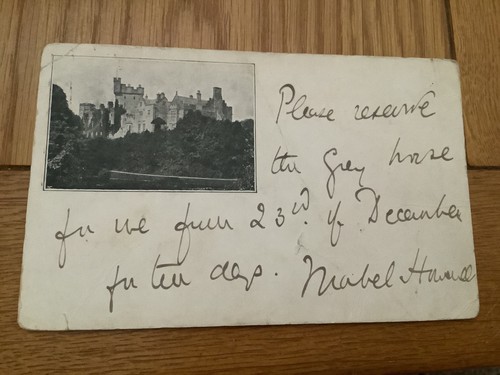 Please reserve
the Grey horse
for me from 23rd of December
for ten days. Mabel